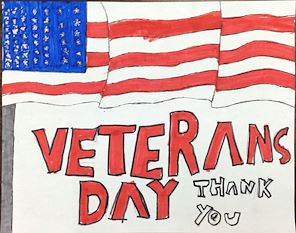 VETERANS
DAY
THANK
YOU